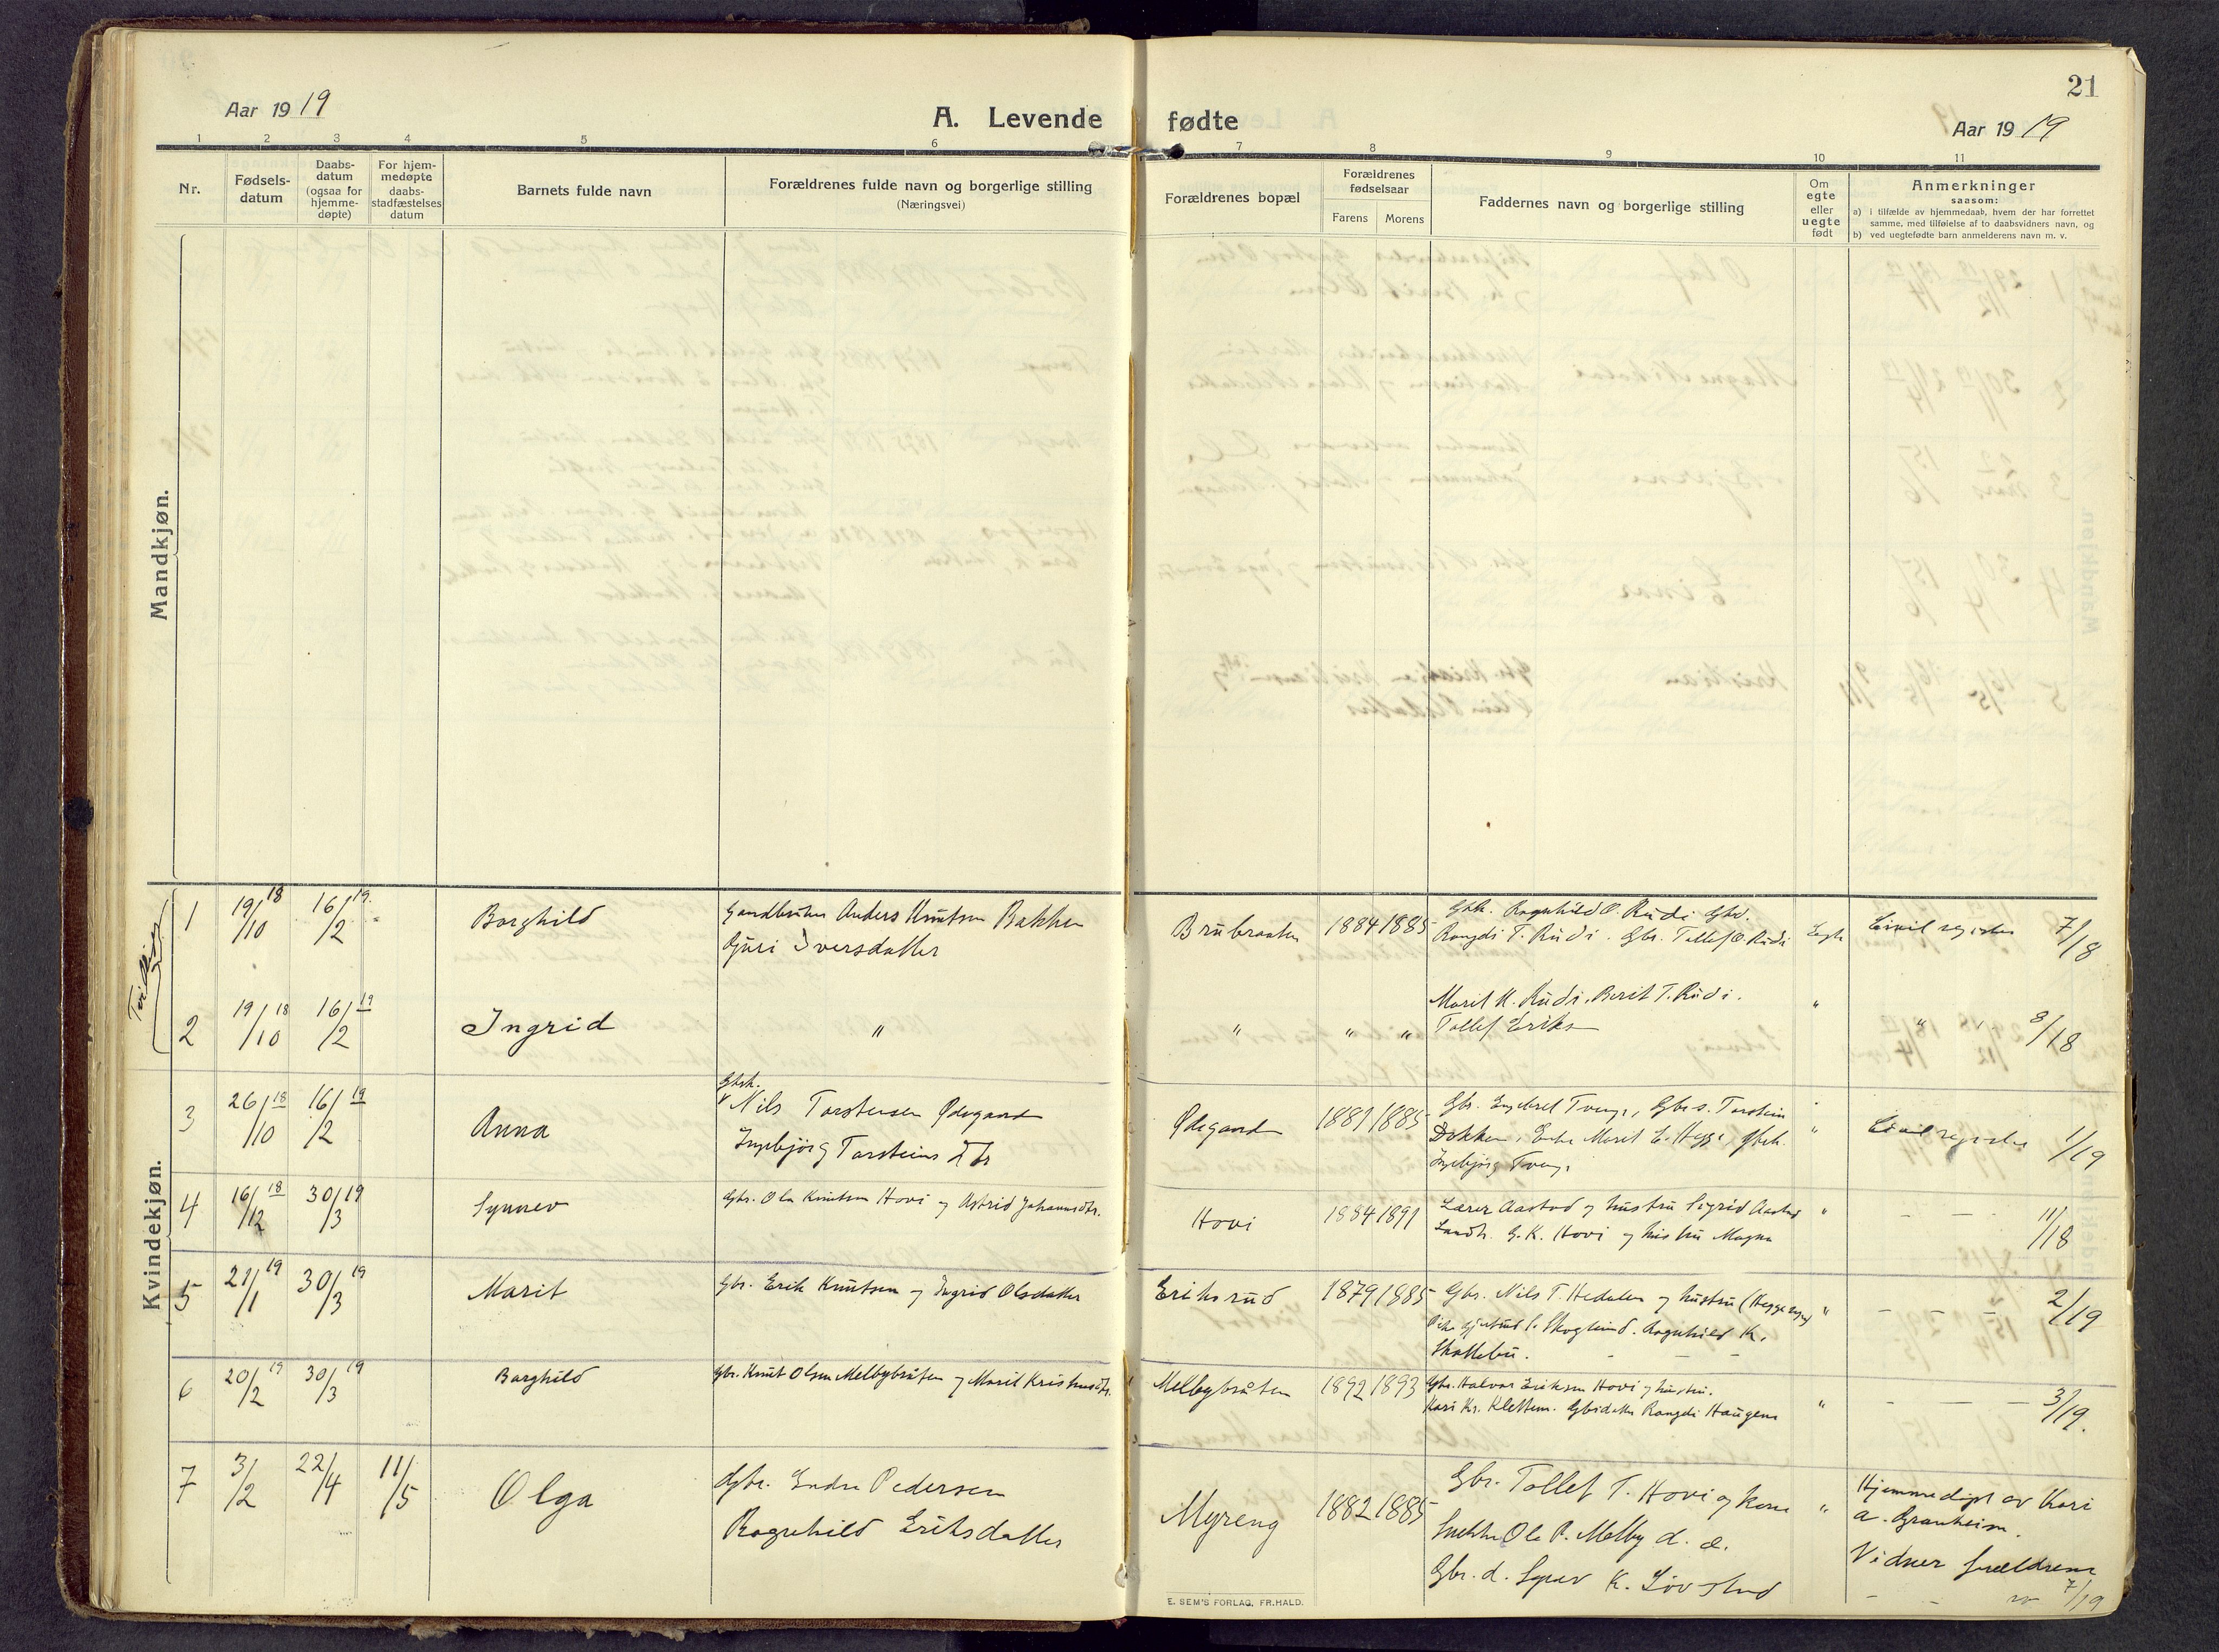 21
Aar 1919
A. Levende
fødte
Aar 1919
1 2 3 4 5 6 7 8 9 10 11
Nr.
Fødsels-
datum
Daabs-
datum
(ogsaa for
hjemme-
døpte)
For hjem-
medøpte
daabs-
stadfæstelses
datum
Barnets fulde navn
Forældrenes fulde navn og borgerlige stilling
(Næringsvei)
Forældrenes bopæl
Forældrenes
fødselsaar
Farens Morens
Faddernes navn og borgerlige stilling
Om
egte
eller
uegte
født
Anmerkninger
saasom:
a) i tilfælde av hjemmedaab, hvem der har forrettet
samme, med tilføielse af to daabsvidners navn, og
b) ved uegtefødte barn anmelderens navn m. v.
Mandkjøn.
Kvindekjøn.
1 19/10 18 16/2 19 Borghild
Gaardbruker Anders Knutsen Bakken
Guri Iversdatter
Brubraaten 1884 1885
Ragnhild O. Rudi Gbr.
Rangdi T. Rudi. Gbr. Tollef O. Rudi
Egte
Civil register 7/18
2 19/10 18 16/2 19 Ingrid "
" " "
Marit K. Rudi. Berit T. Rudi.
Tollef Eriks
"
" " 8/18
3 26/10 18 16/2 19 Anna
Nils Torstensen Ødegaard
Ingebjørg Torsteins dtr
Ødegaard 1881 1885
Gbr. Engebret Tvenge, Gbrs. Torstein
Dokken, Enke Marit E. Hegge,
Ingebjørg Tvenge
"
Civil register 1/19
4 16/12 18 30/3 19 Synnev
Gbr. Ola Knutsen Hovi og Astrid Johannesdtr.
Hovi 1884 1891
Lærer Aastad og hustru Sigrid Aastad
Landh. G. K. Hovi og hustru Magna
"
- - - 11/18
5 21/1 19 30/3 19 Marit
Gbr. Erik Knutsen og Ingrid Olsdatter
Eriksrud 1879 1885
Gbr. Nils T. Hedalen og hustru
Pike Gjertrud Skoglund. Ragnhild K.
Skattebu.
"
- - - 2/19
6 20/2 19 30/3 19 Borghild
Gbr. Knut Olsen Melbybråten og Marit
Melbybråten 1892 1893
Gbr. Halvor Eriksen Hovi og hustru.
Kari Kr. Klettum. Rangdi Haugen
"
- - - 3/19.
7 3/2 22/4 11/5 Olga
Gbr. Endre Pedersen
Ragnhild Eriksdatter
Myreng 1882 1885
Gbr. Tollef T. Hovi og kone
Ole P. Melby d. æ.
Gbr. d. K. Løvstud
"
Hjemmedøpt av Kari
A. Granheim.
Vidner forældrene
- - 7/19
E. SEM'S FORLAG, FR.HALD.